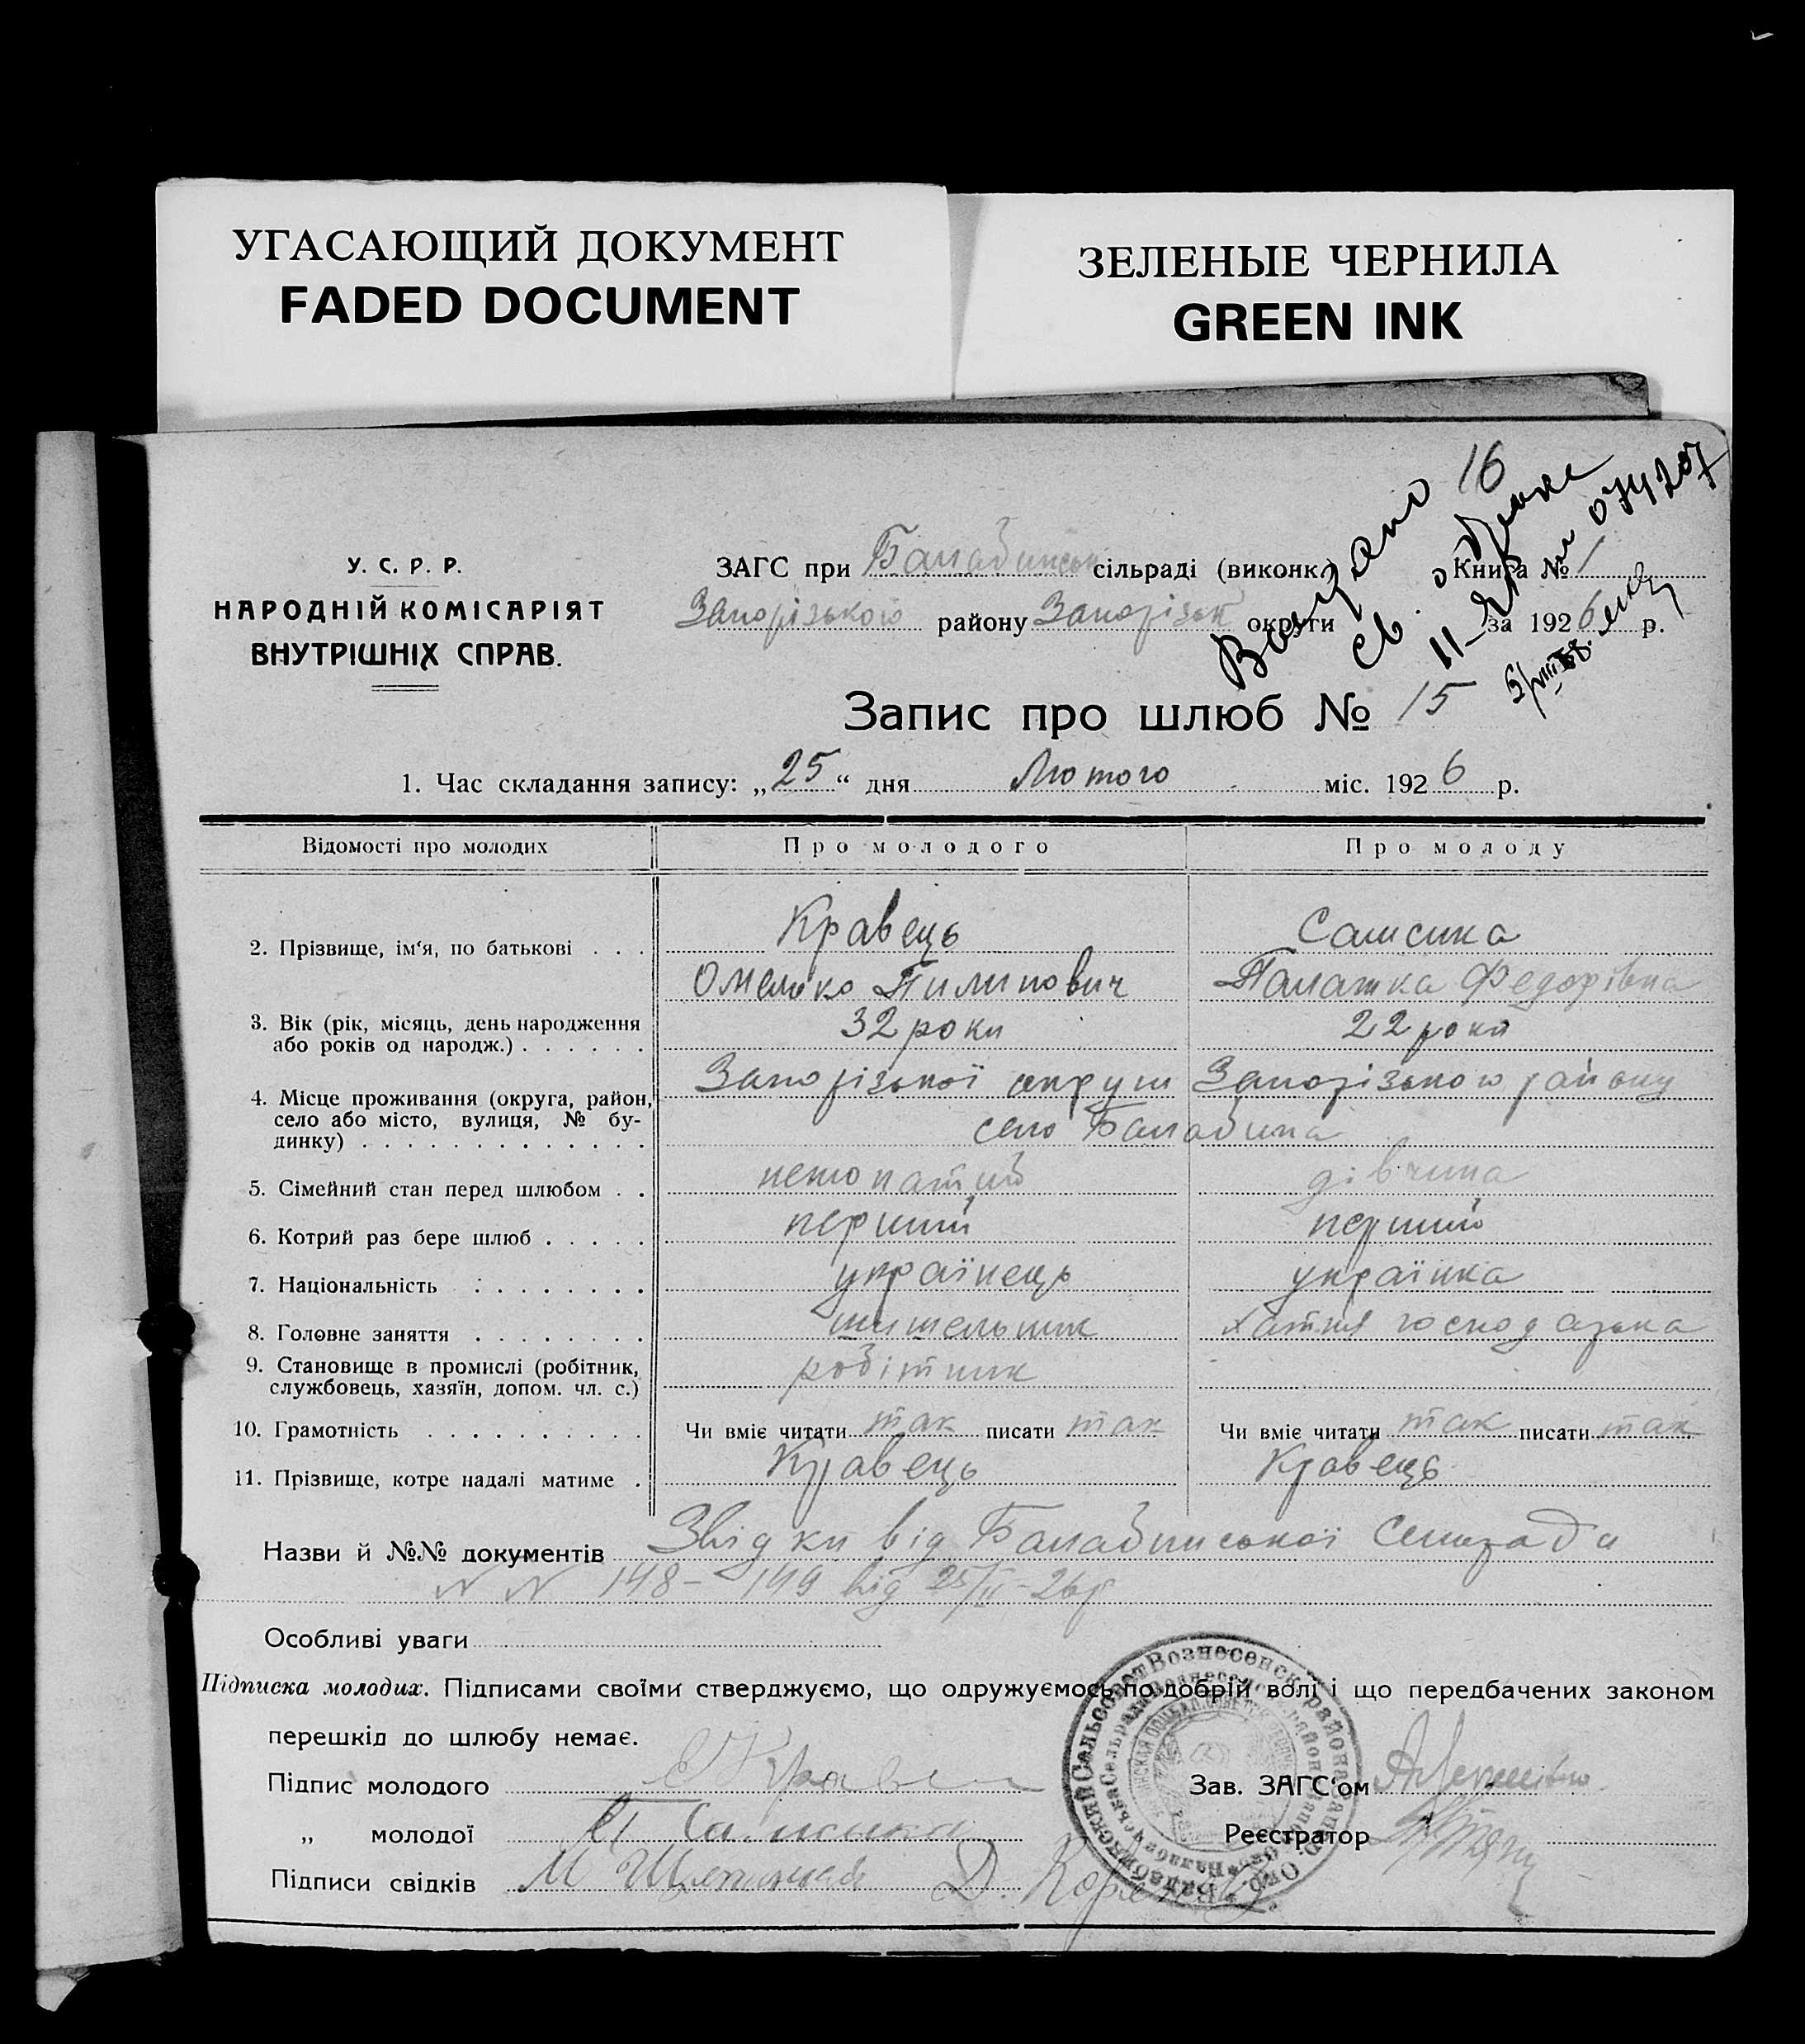 УГАСАЮЩИЙ ДОКУМЕНТ
FADED DOCUMENT
ЗЕЛЕНЫЕ ЧЕРНИЛА
GREEN INK
16
074207
У. С. Р. Р.
НАРОДНІЙ КОМІСАРІЯТ
ВНУТРІШНІХ СПРАВ.
ЗАГС при Балабинськ сільраді (виконк.) Книга № 1
Запорізького району Запорізьк округи за 1926 р.
Запис про шлюб № 15
1. Час складання запису: „25“ дня Лютого міс. 1926 р.
Відомості про молодих Про молодого Про молоду
2. Прізвище, ім‘я, по батькові . . . Кравець
Омелько Пилипович Палажка Федорівна
3. Вік (рік, місяць, день народження 32 роки 22 роки
або років од народж.) . . . . . .
4. Місце проживання (округа, район, Запорізької округи Запорізького району
село або місто, вулиця, № бу-
динку) . . . . . . . . . . . . . село Балабина
5. Сімейний стан перед шлюбом . . нежонатий дівчина
6. Котрий раз бере шлюб . . . . . перший перший
7. Національність . . . . . . . . українець українка
8. Головне заняття . . . . . . . . хатня господарка
9. Становище в промислі (робітник, робітник
службовець, хазяїн, допом. чл. с.)
10. Грамотність . . . . . . . . . . Чи вміє читати так писати так Чи вміє читати так писати так
11. Прізвище, котре надалі матиме . Кравець Кравець
Назви й №№ документів Звідки від Балабинської Сільради
N N 148 – 149 від 25/II – 26р
Особливі уваги
Підписка молодих. Підписами своїми стверджуємо, що одружуємось по добрій волі і що передбачених законом
перешкід до шлюбу немає.
Підпис молодого Зав. ЗАГС‘ом
„ молодої Реєстратор
Підписи свідків М
Балабинский Сельсовет Вознесенск. района Запор. Окр.